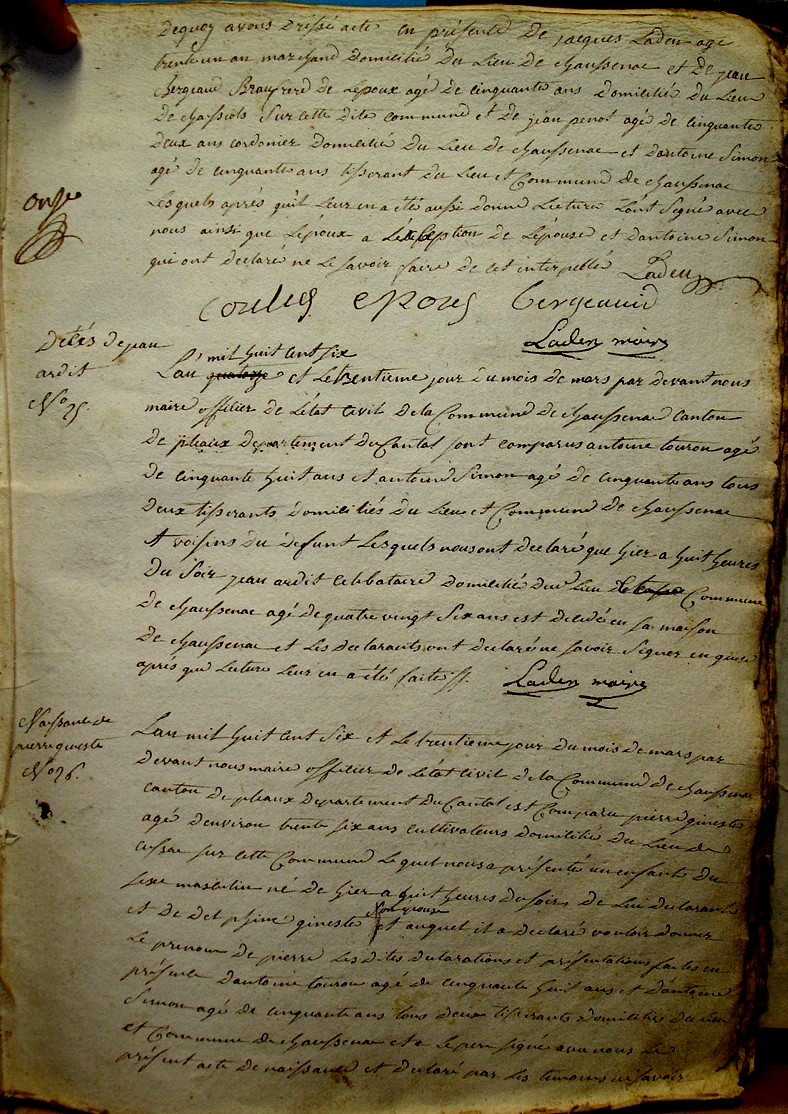 Dequoy avons Dressé acte en présence De jacques Laden agé
trente un an marchand Domicilié Du Lieu De chaussenac et De jean
Bergeaud Beaufrere De Lepoux agé De Cinquante ans Domicilié Du Lieu
De chassiols Sur cette dite commune et De jean penot agé De Cinquante
Deux ans cordonier Domicilié Du Lieu De chaussenac et Dantoine Simon
agé De Cinquante ans tisserant Du Lieu et Commune De chaussenac
Lesquels aprés qu'il Leur en a été aussi Donné Lecture Lont Signé avec
nous ainsi que Lépoux a Lexception De Lépouse et Dantoine Simon
qui ont declaré ne Le Savoir faire De cet interpellé Laden
epoux Bergeaud
Laden maire
Décés De jean
ardit
N° 25.
mil huit Cent Six
L'an quatorze et Le trentieme jour Du mois De mars par Devant nous
maire officier De L'état Civil De la Commune De chaussenac canton
De pleaux Departement Du Cantal sont comparus antoine touron agé
De Cinquante huit ans et antoine Simon agé De Cinquante ans tous
Deux tisserants Domiciliés Du Lieu et Commune De chaussenac
et voisins Du Defunt Lesquels nous ont Declaré que hier a huit heures
Du Soir jean ardit Celibataire Domicilié Du Lieu Commune
De chaussenac agé De quatre vingt Six ans est Décédé en Sa maison
De chaussenac et Les Declarants ont Declaré ne Savoir Signer
aprés que Lecture Leur en a été faite
Laden maire
Naissance de
pierre gineste
N° 26.
Lan mil huit Cent Six et Le trentieme jour Du mois De mars par
Devant nous maire officier De Létat Civil De la Commune De chaussenac
canton De pleaux Departement Du Cantal est Comparu pierre gineste
agé Denviron trente Six ans cultivateurs Domicilié Du Lieu De
cussac sur cette Commune Le quel nous a présenté un enfant Du
sexe masculin né De hier a huit heures Du Soir De Lui Declarant
Son epouse
et De Delphine gineste et auquel il a Declaré vouloir Donner
Le prenom De pierre Les Dites Declarations et présentations faites en
présence Dantoine touron agé De Cinquante huit ans et Dantoine
Simon agé De Cinquante ans tous Deux tisserants Domiciliés Du Lieu
et Commune De chaussenac et a Le pere Signé avec nous Le
présent acte De naissance et Declaré par Les temoins ne Savoir